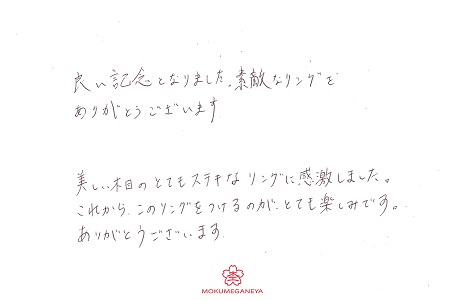 良い記念となりました。素敵なリングを
ありがとうございます
美しい木目のとてもステキなリングに感激しました。
これから、このリングをつけるのが、とても楽しみです。
ありがとうございます
MOKUMEGANEYA